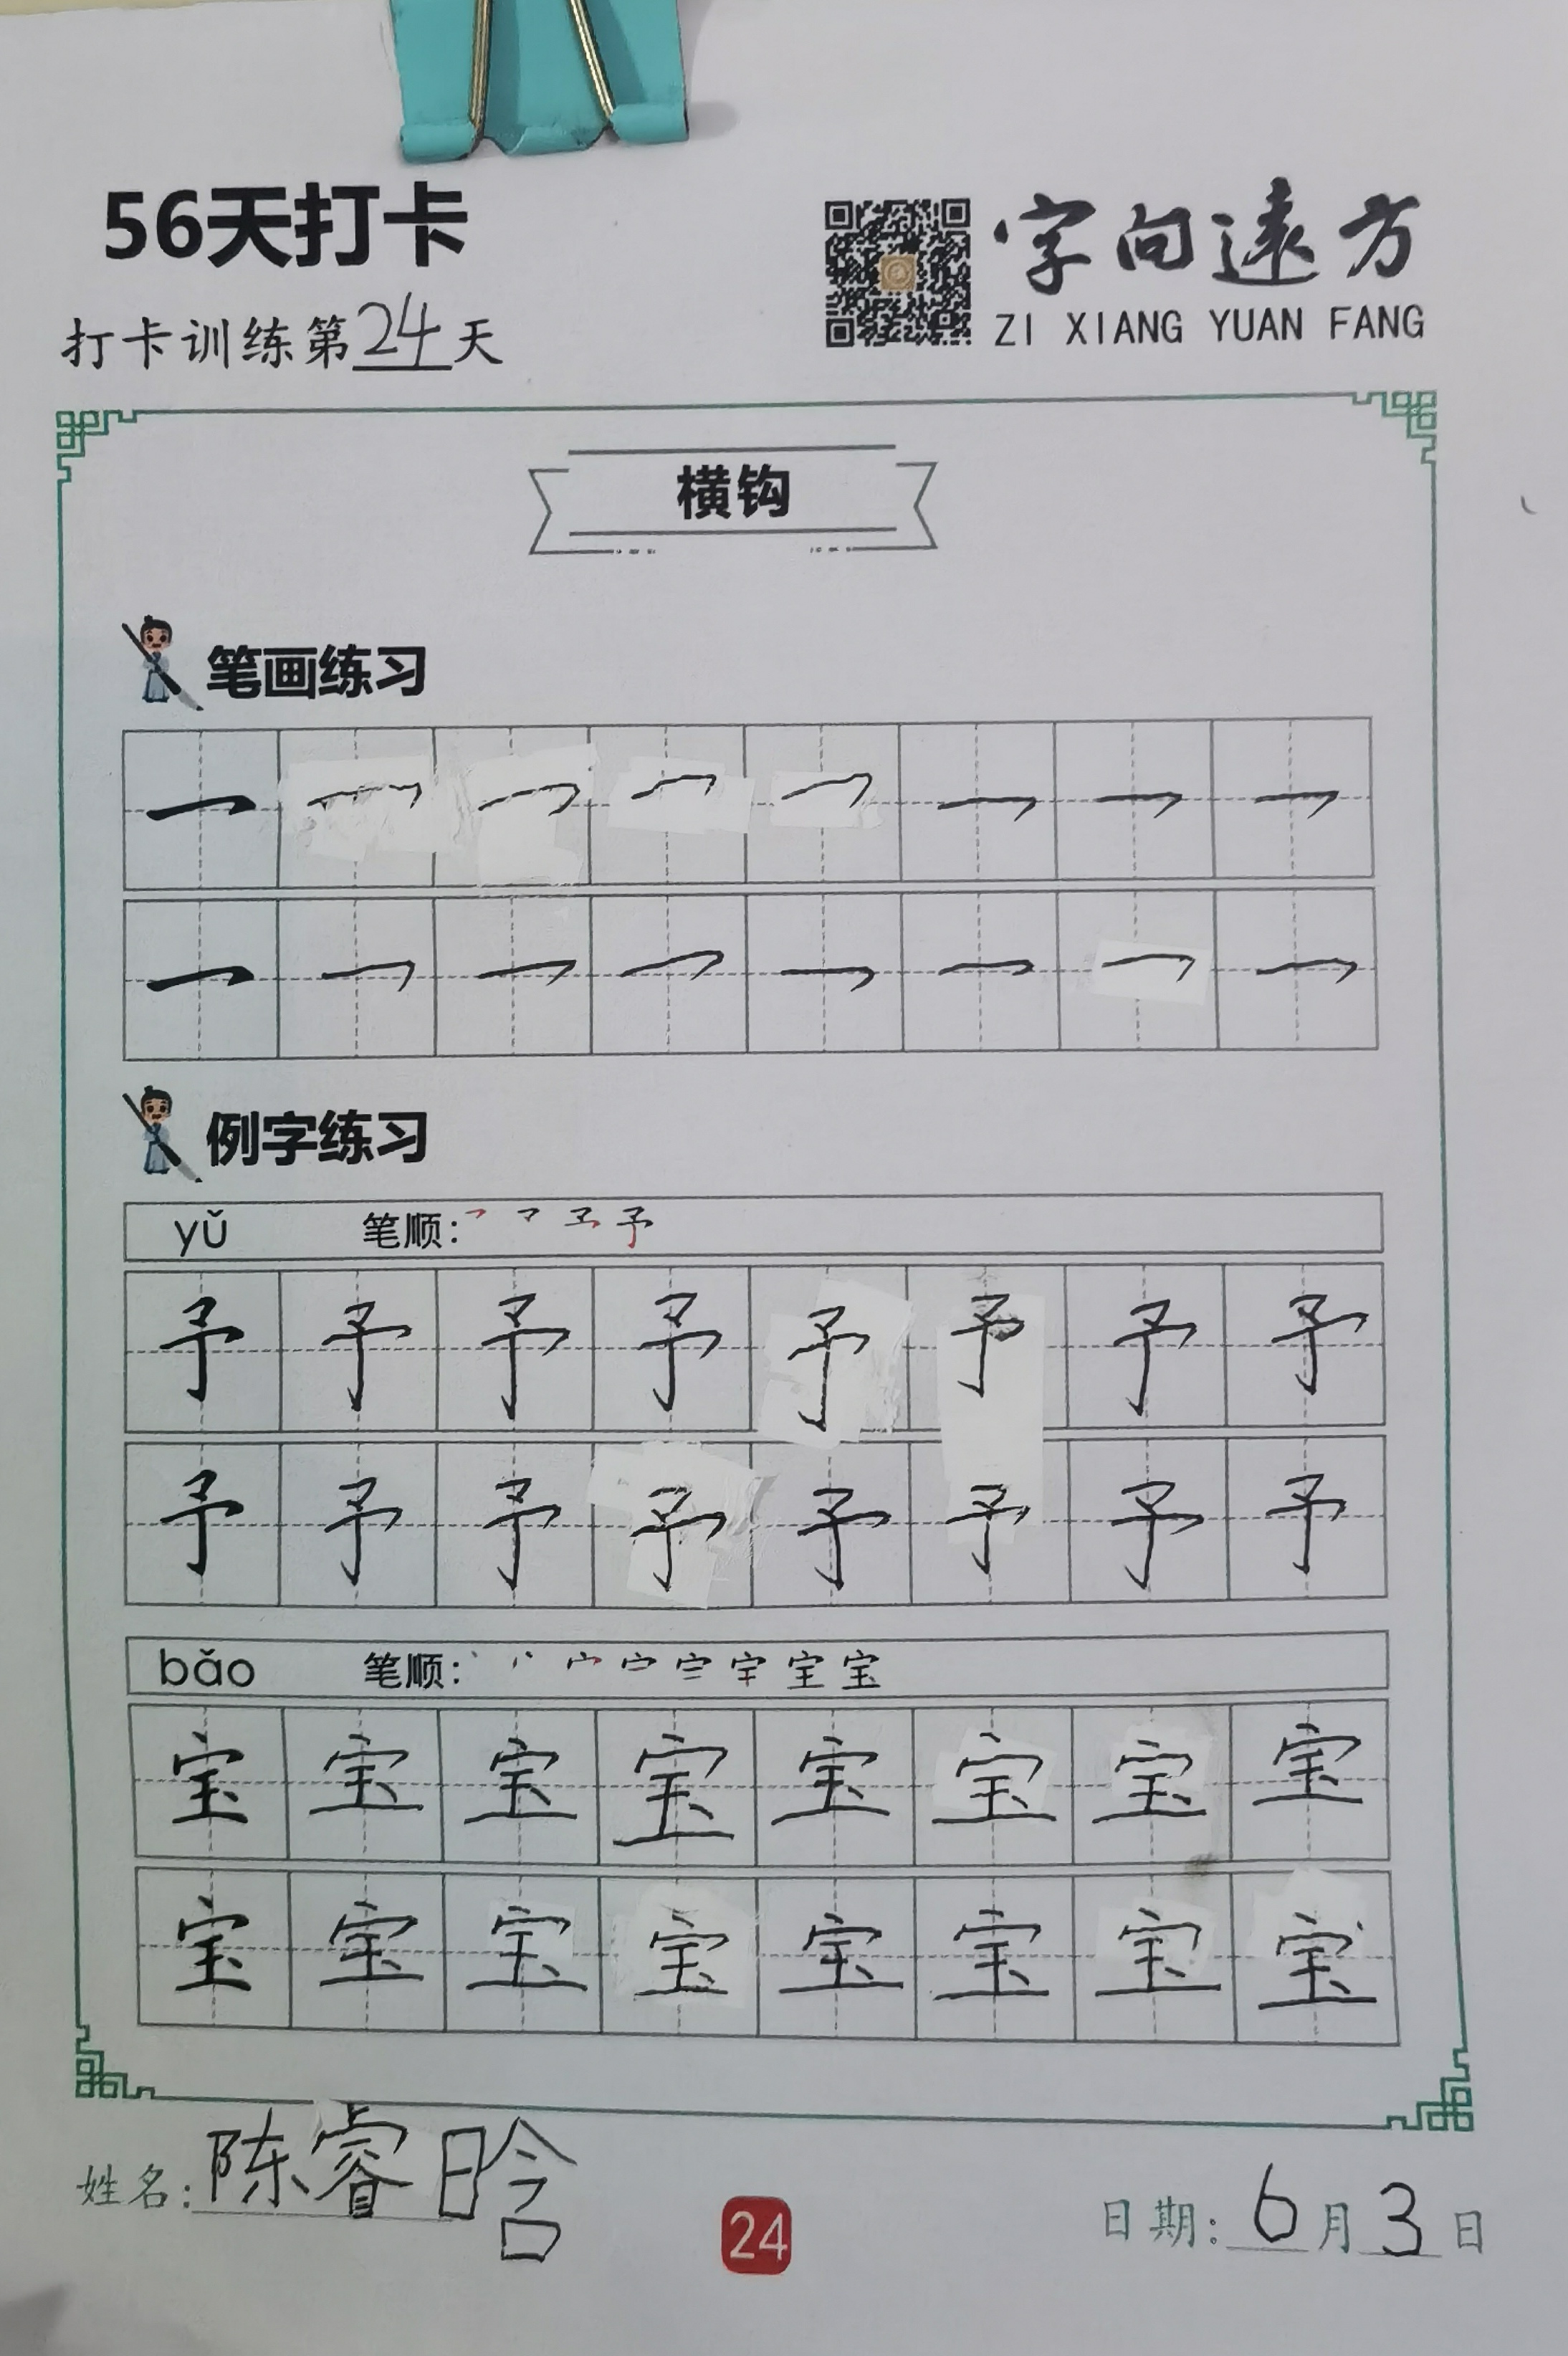 56天打卡
字向遠方
打卡训练第24天
ZI XIANG YUAN FANG
横钩
笔画练习
例字练习
yǔ 笔顺:
予 予 予 予 予 予 予 予
予 予 予 予 予 予 予 予
bǎo 笔顺:
宝 宝 宝 宝 宝 宝 宝 宝
宝 宝 宝 宝 宝 宝 宝 宝
姓名:陈睿晗
24
日期:6月3日